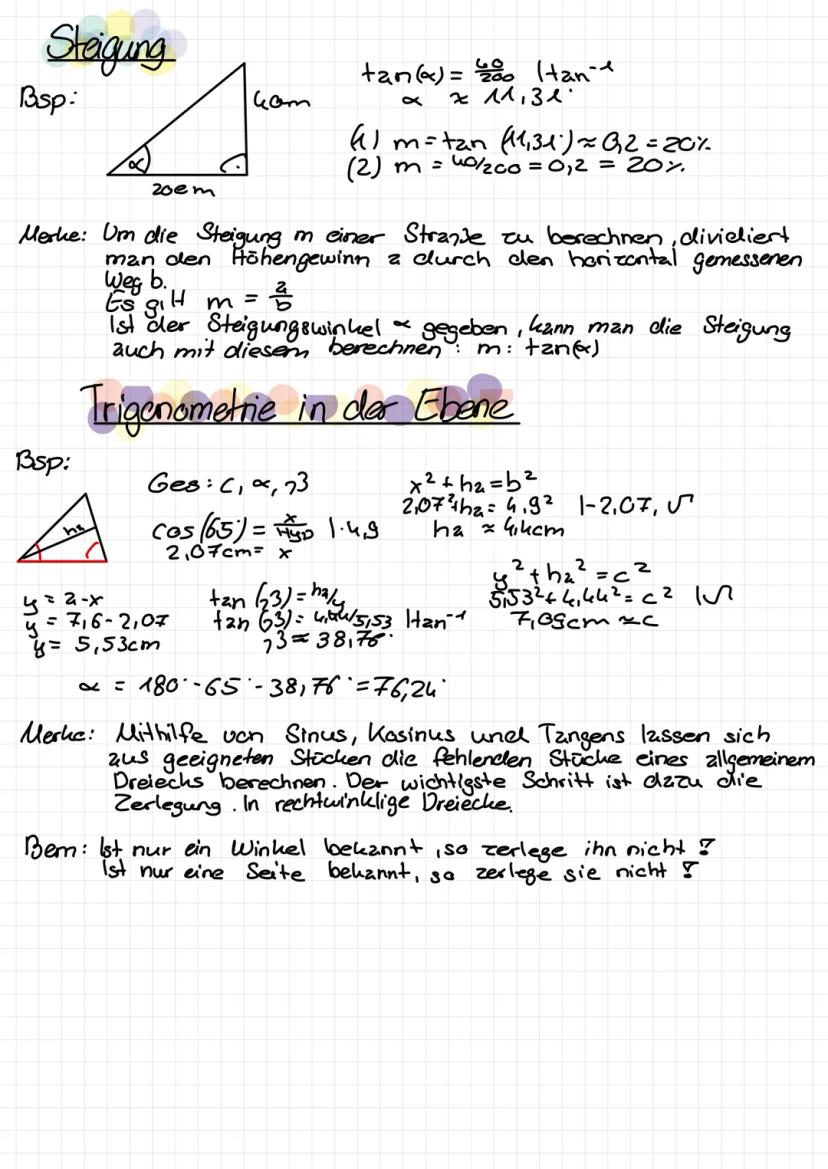 Steigung
Bsp:
40m
α
200m
tan(α) = 40/200 |tan⁻¹
α ≈ 11,31°
(1) m = tan (11,31°) ≈ 0,2 = 20%
(2) m = 40/200 = 0,2 = 20%
Merke: Um die Steigung m einer Straße zu berechnen, dividiert
man den Höhengewinn a durch den horizontal gemessenen
Weg b.
Es gilt m = a/b
Ist der Steigungswinkel α gegeben, kann man die Steigung
auch mit diesem berechnen: m: tan(α)
Trigonometrie in der Ebene
Bsp:
ha
Ges: c, α, β
cos (65°) = x/Hyp |·4,9
2,07cm = x
x² + ha = b²
2,07² + ha = 4,9² |-2,07, √
ha ≈ 4,4cm
y = a-x
y = 7,6 - 2,07
y = 5,53cm
tan (β) = ha/y
tan (β) = 4,44/5,53 |tan⁻¹
β ≈ 38,76°
y² + ha² = c²
5,53² + 4,44² = c² |√
7,09cm ≈ c
α = 180° - 65° - 38,76° = 76,24°
Merke: Mithilfe von Sinus, Kosinus und Tangens lassen sich
aus geeigneten Stücken die fehlenden Stücke eines allgemeinem
Dreiecks berechnen. Der wichtigste Schritt ist dazu die
Zerlegung. In rechtwinklige Dreiecke.
Bem: Ist nur ein Winkel bekannt, so zerlege ihn nicht!
Ist nur eine Seite bekannt, so zerlege sie nicht!